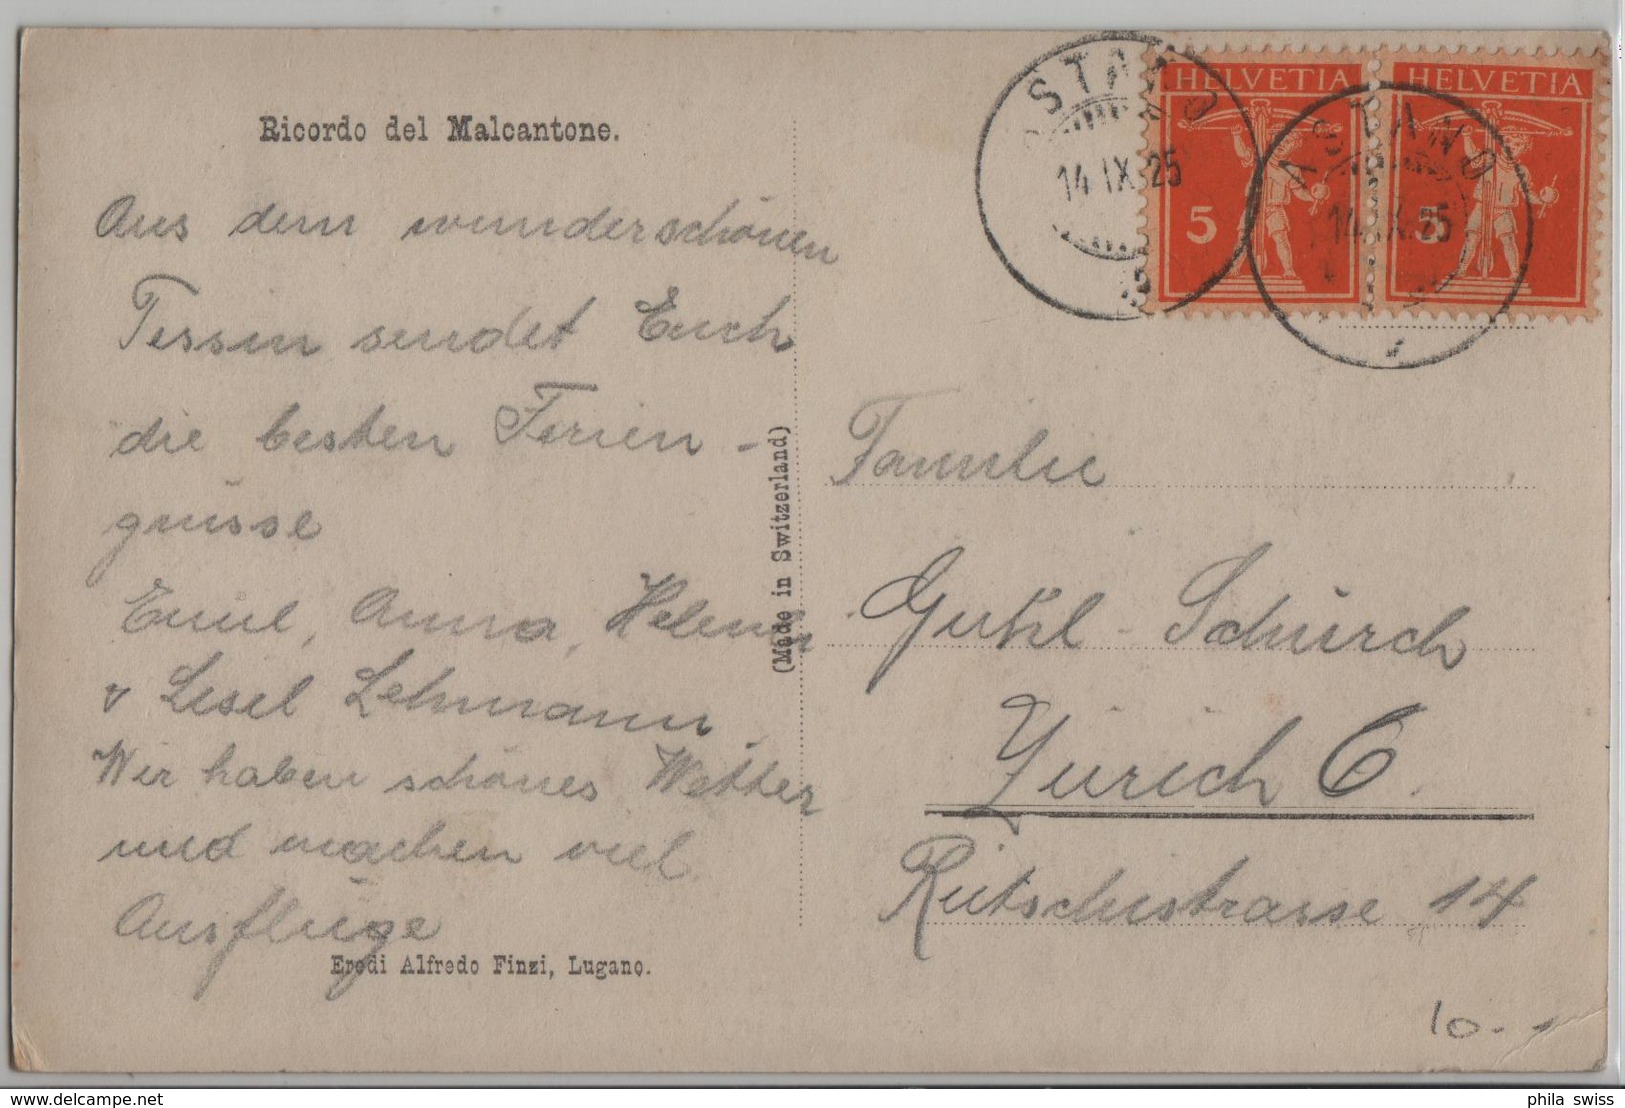 Ricordo del Malcantone.
Aus dem wunderschönen
Tessin sendet Euch
die besten Ferien -
grüsse
Emil, Anna, Helene
& Liesel Lehmann.
Wir haben schönes Wetter
und machen viel
Ausflüge
Eredi Alfredo Finzi, Lugano.
(Made in Switzerland)
HELVETIA HELVETIA
5 5
ASTANO
14.IX.25
ASTANO
14.IX.25
Familie
Guhl - Schürch
Zürich 6.
Rütschistrasse 14
10.-
phila swiss